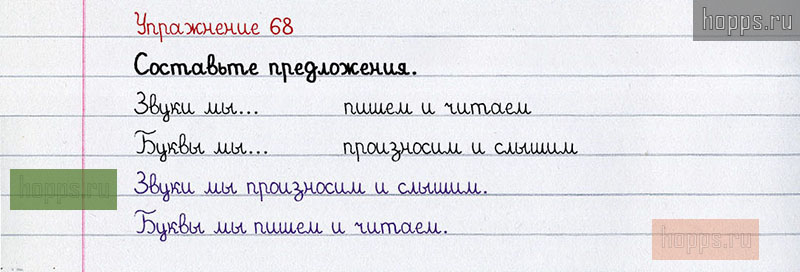 Упражнение 68
hopps.ru
Составьте предложения.
Звуки мы... пишем и читаем
Буквы мы... произносим и слышим
Звуки мы произносим и слышим.
hopps.ru
Буквы мы пишем и читаем.
hopps.ru